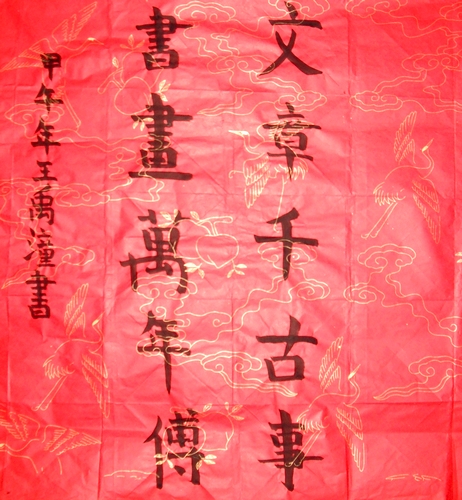 文章千古事
書畫萬年傅
甲午年王禹潼書